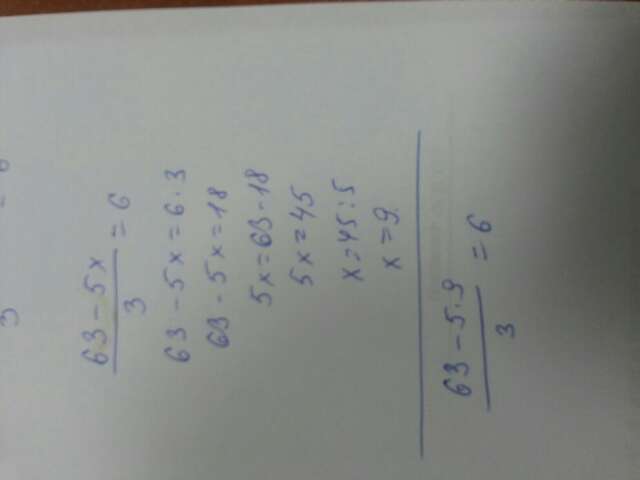 63 - 5x / 3 = 6
63 - 5x = 6 · 3
63 - 5x = 18
5x = 63 - 18
5x = 45
x = 45 : 5
x = 9
63 - 5 · 9 / 3 = 6